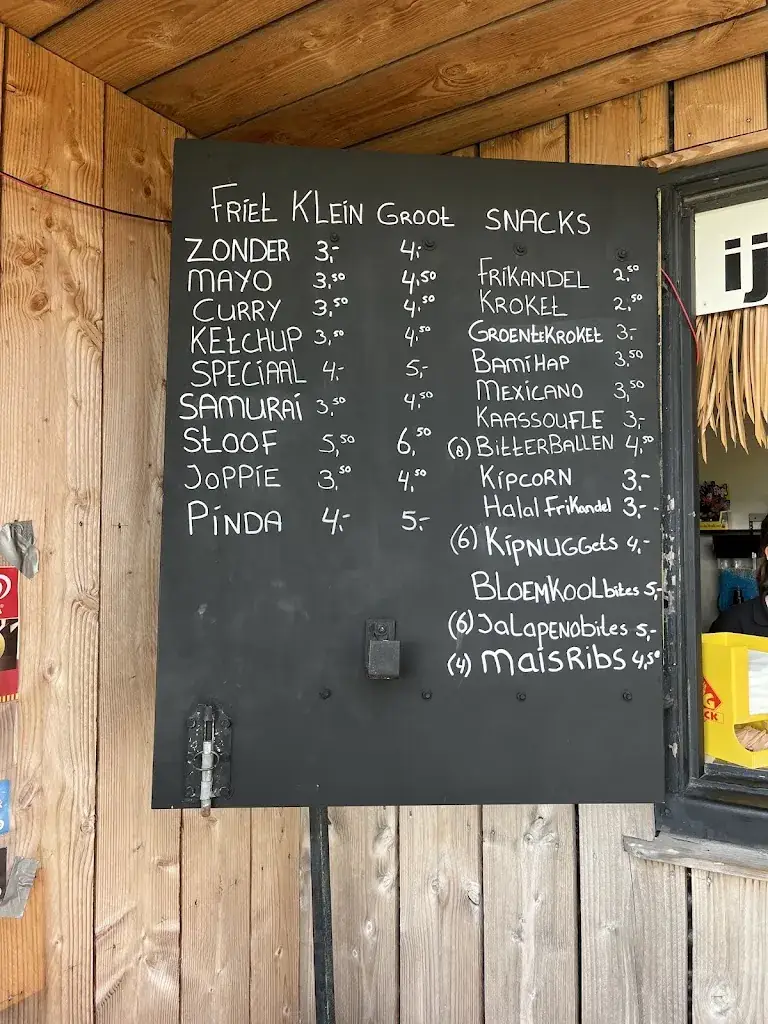 Friet Klein Groot
Zonder 3,- 4,-
Mayo 3,50 4,50
Curry 3,50 4,50
Ketchup 3,50 4,50
Speciaal 4,- 5,-
Samurai 3,50 4,50
Stoof 5,50 6,50
Joppie 3,50 4,50
Pinda 4,- 5,-
SNACKS
Frikandel 2,50
Kroket 2,50
Groentekroket 3,-
Bamihap 3,50
Mexicano 3,50
Kaassoufle 3,-
(8) Bitterballen 4,50
Kipcorn 3,-
Halal Frikandel 3,-
(6) Kipnuggets 4,-
Bloemkoolbites 5,-
(6) Jalapenobites 5,-
(4) Maisribs 4,50
ij